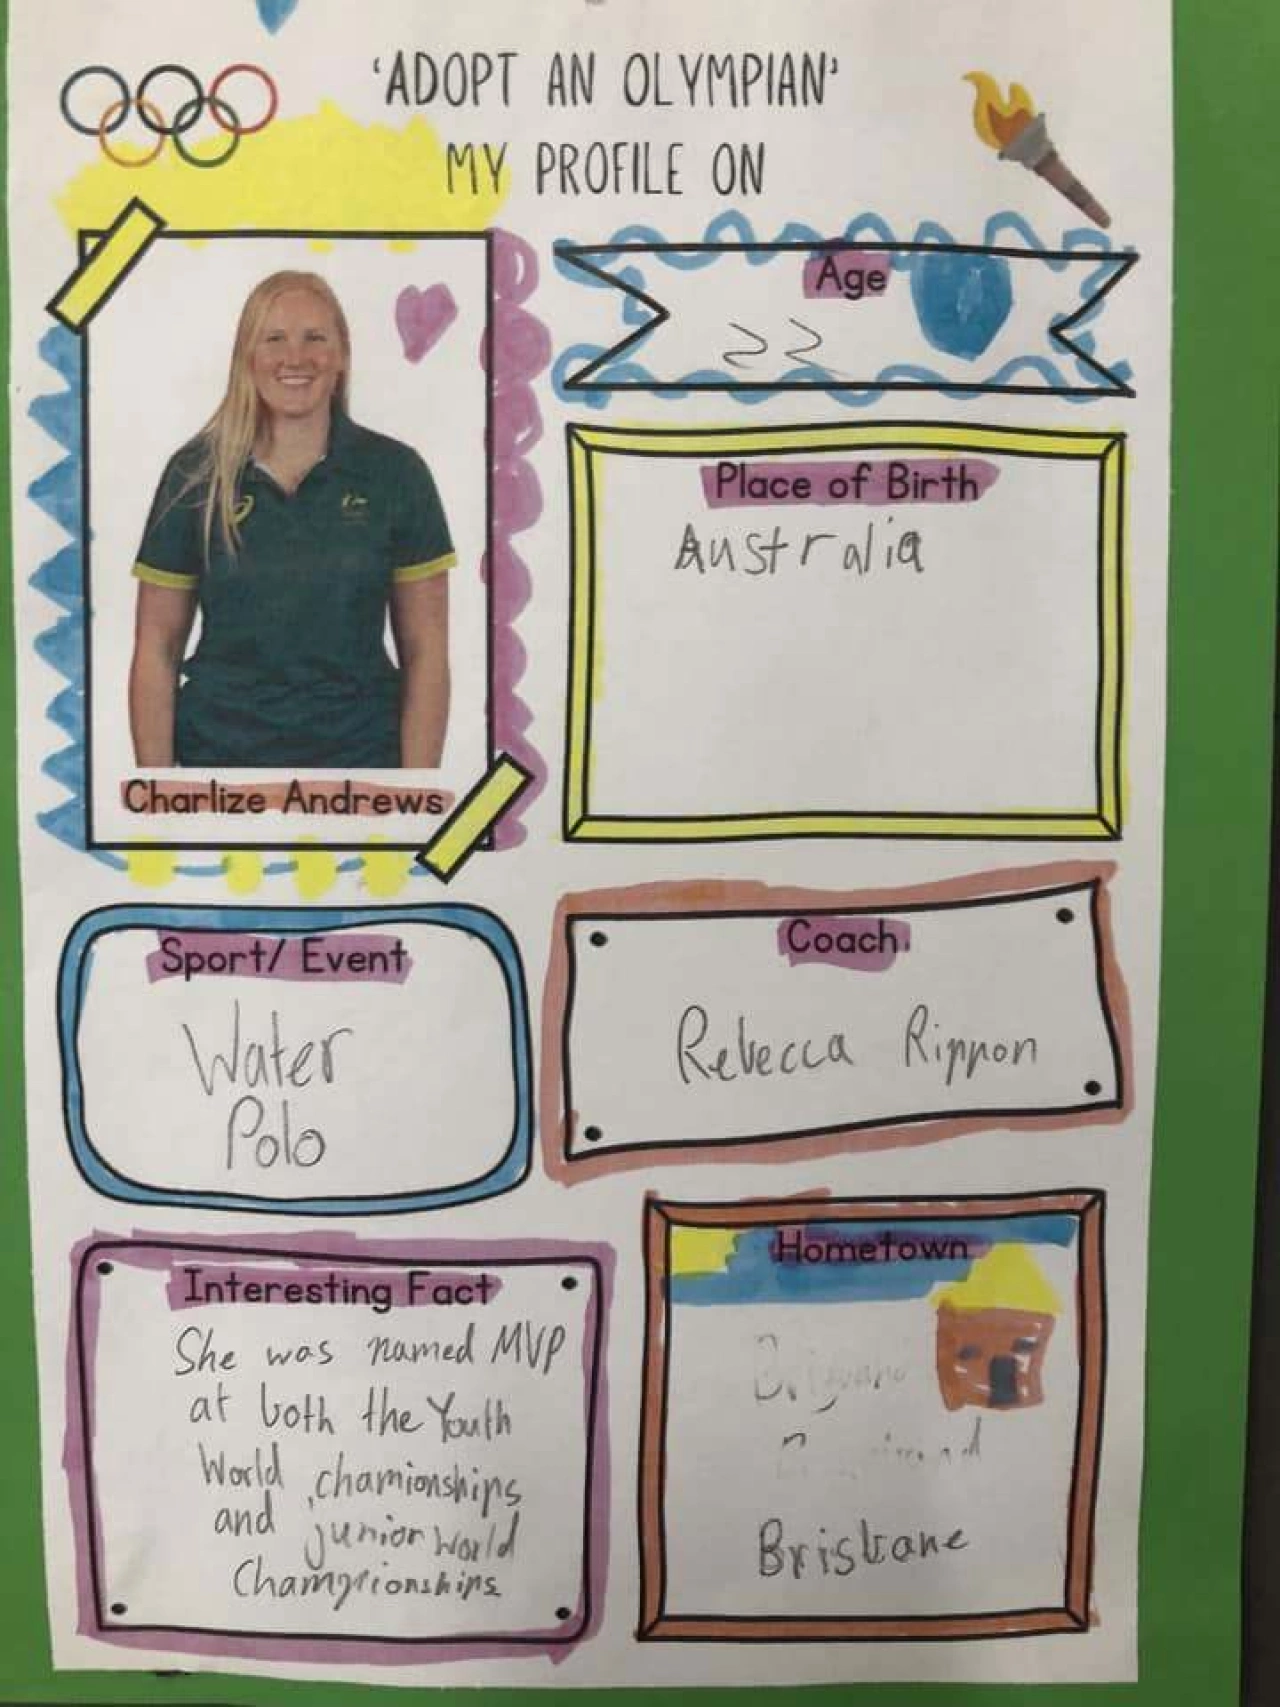 ‘ADOPT AN OLYMPIAN’
MY PROFILE ON
Charlize Andrews
Age
22
Place of Birth
Australia
Sport/ Event
Water
Polo
Coach
Rebecca Rippon
Interesting Fact
She was named MVP
at both the Youth
World chamionships
and junior World
Championships
Hometown
Brisbane